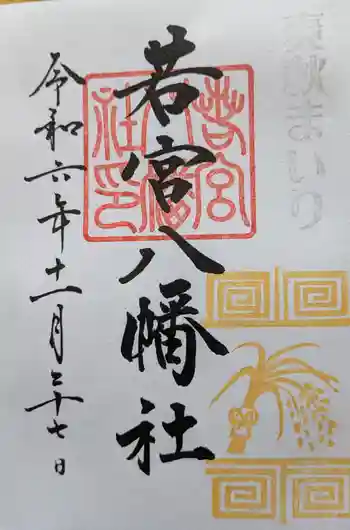 葵秋まいり
若宮八幡社
若宮八幡社印
令和六年十一月二十七日